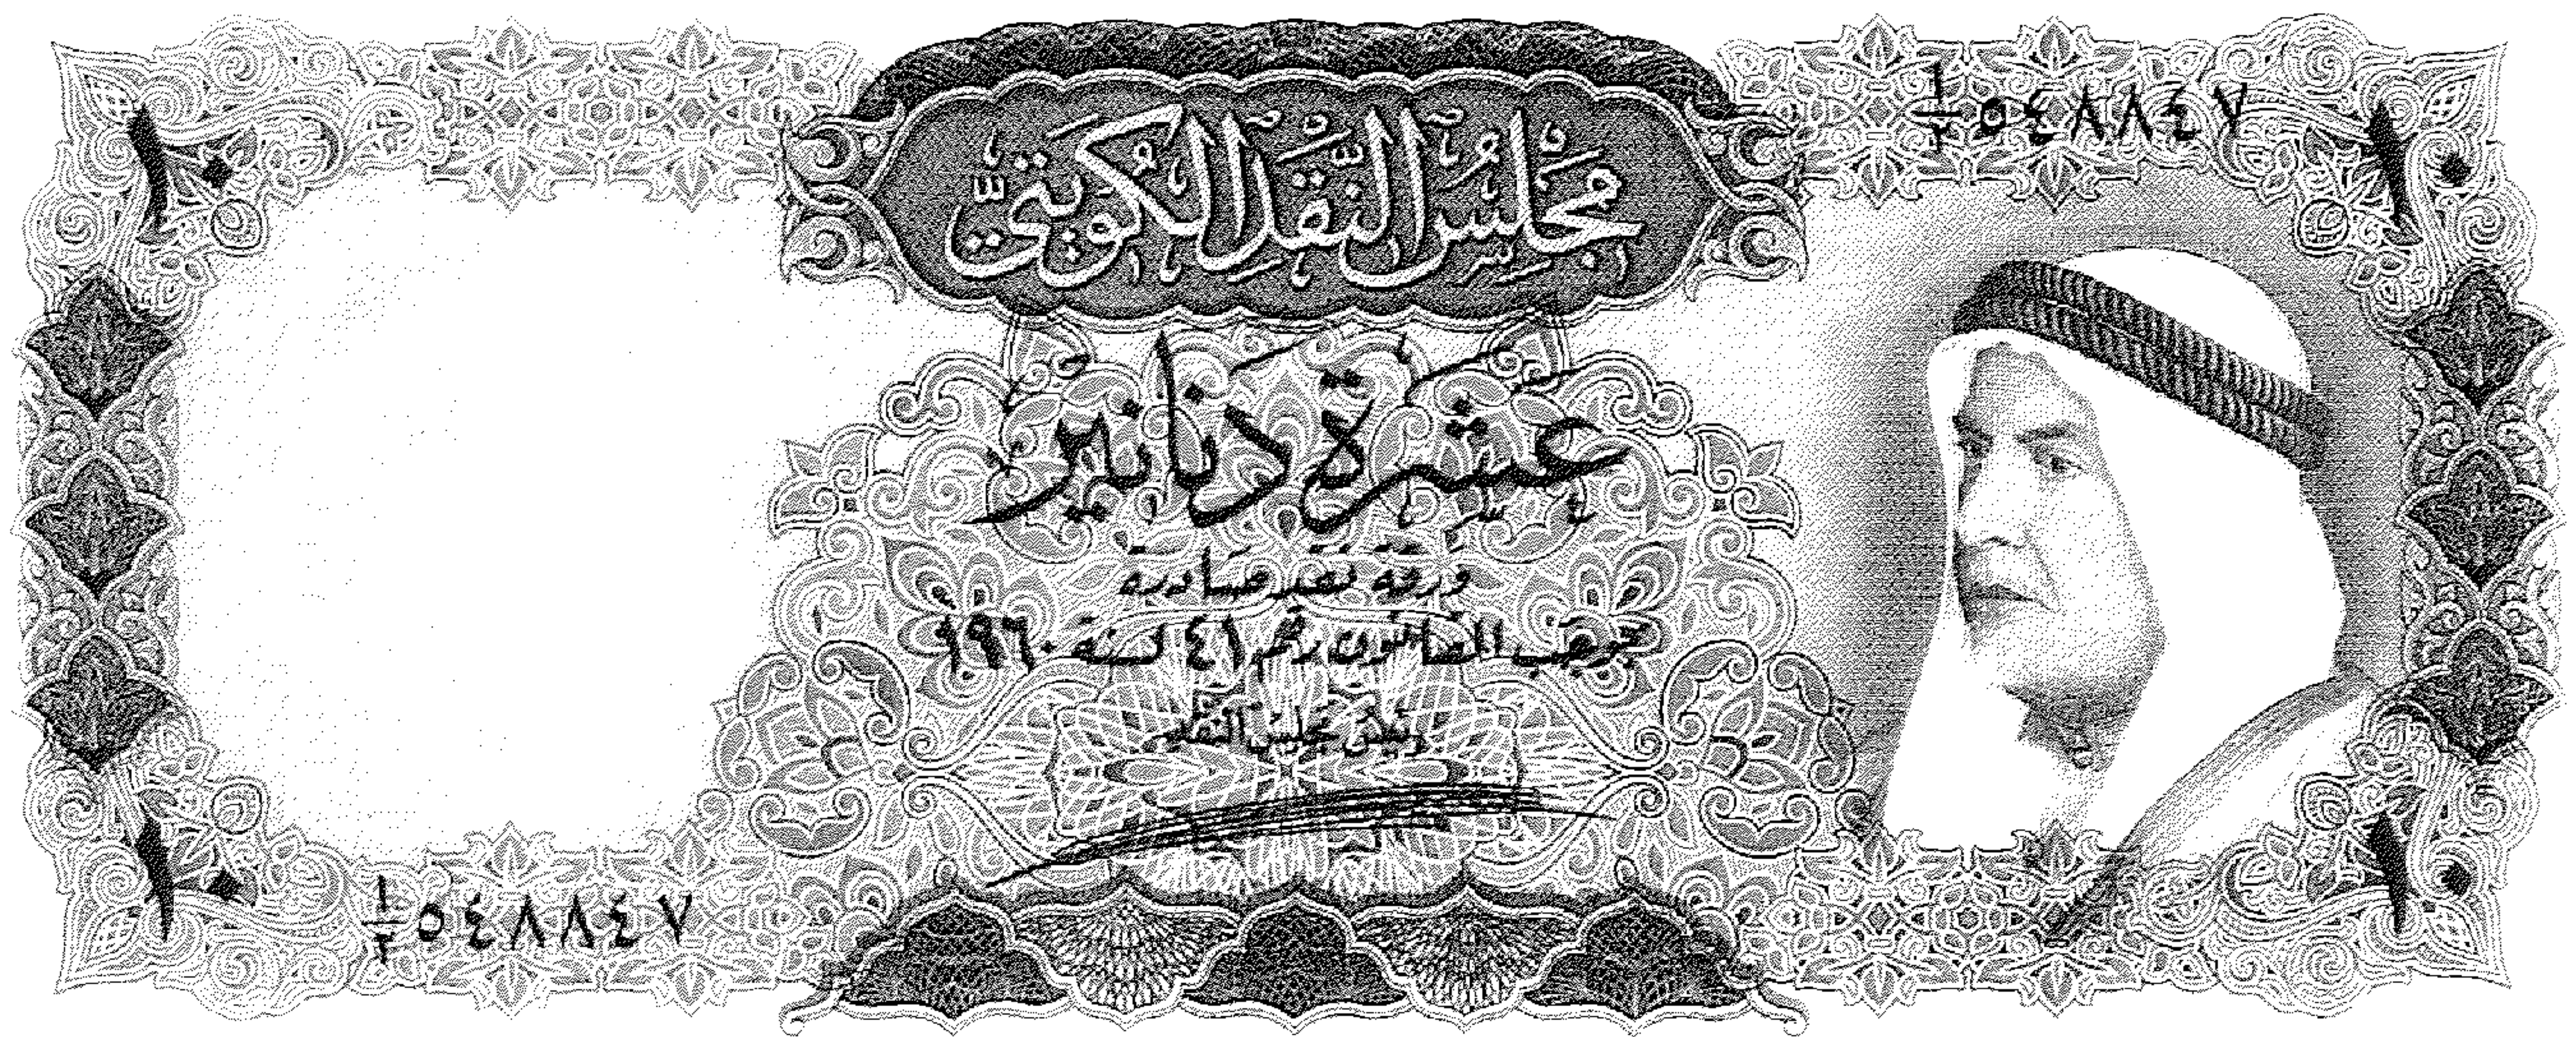 ١٠
١/٢ ٥٤٨٨٤٧
١٠
مَجْلِسُ النَّقْدِ الكُوَيتيّ
عَشَرة دَنانير
ورقة نقد صادرة
بموجب القانون رقم ٤١ لسنة ١٩٦٠
رئيس مجلس النقد
١٠
١/٢ ٥٤٨٨٤٧
١٠